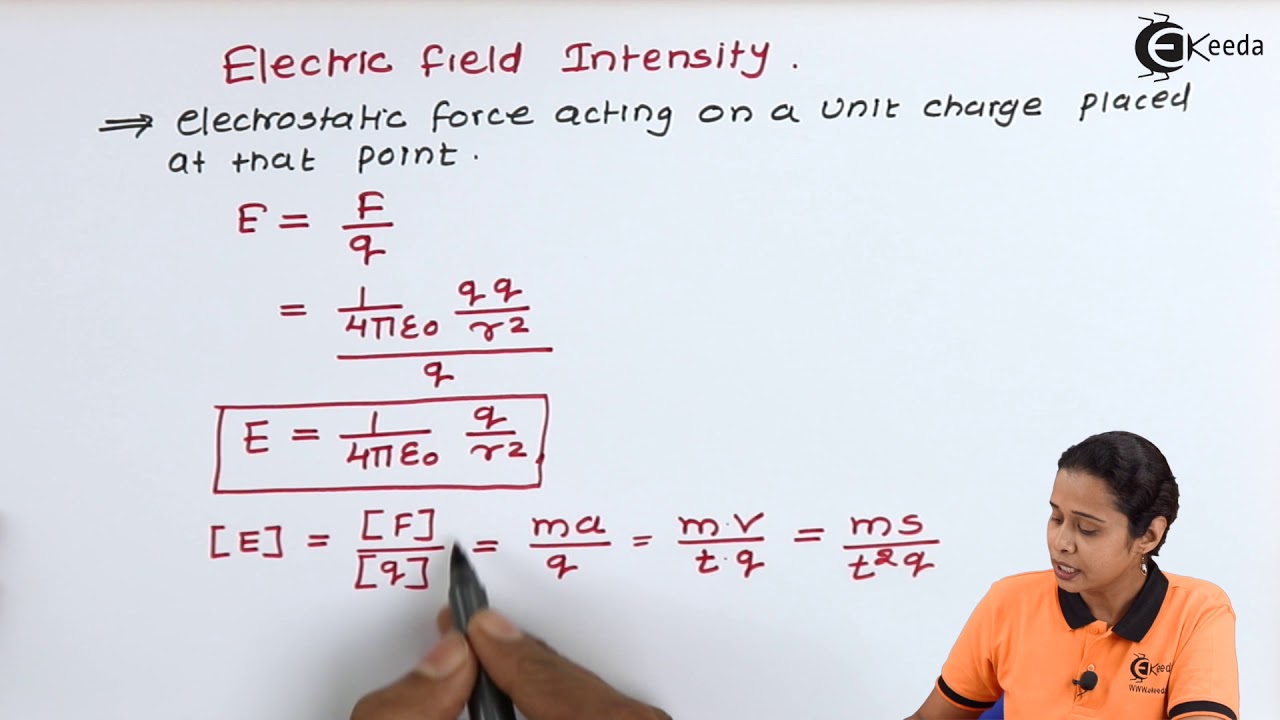 Electric field Intensity.
EKeeda
⇒ electrostatic force acting on a unit charge placed
at that point.
E = F/q
= 1/4πε0 qq/r2 / q
E = 1/4πε0 q/r2
[E] = [F]/[q] = ma/q = m.v/t.q = ms/t2q
EKeeda
www.ekeeda